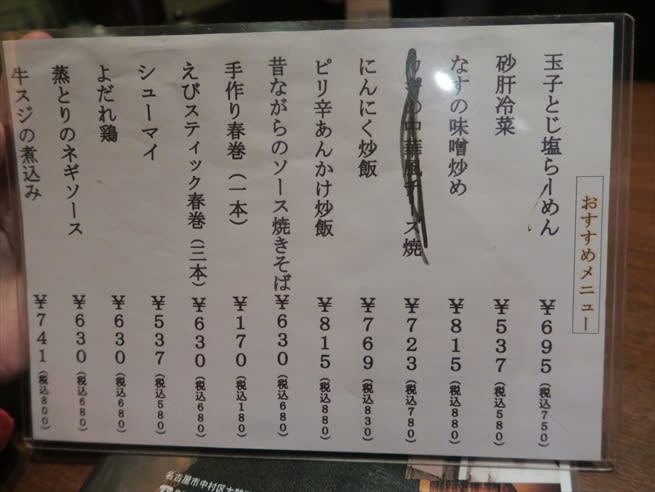 おすすめメニュー
玉子とじ塩らーめん ￥695（税込750）
砂肝冷菜 ￥537（税込580）
なすの味噌炒め ￥815（税込880）
の中華風チーズ焼 ￥723（税込780）
にんにく炒飯 ￥769（税込830）
ピリ辛あんかけ炒飯 ￥815（税込880）
昔ながらのソース焼きそば ￥630（税込680）
手作り春巻（一本） ￥170（税込180）
えびスティック春巻（三本） ￥630（税込680）
シューマイ ￥537（税込580）
よだれ鶏 ￥630（税込680）
蒸とりのネギソース ￥630（税込680）
牛スジの煮込み ￥741（税込800）
名古屋市中村区